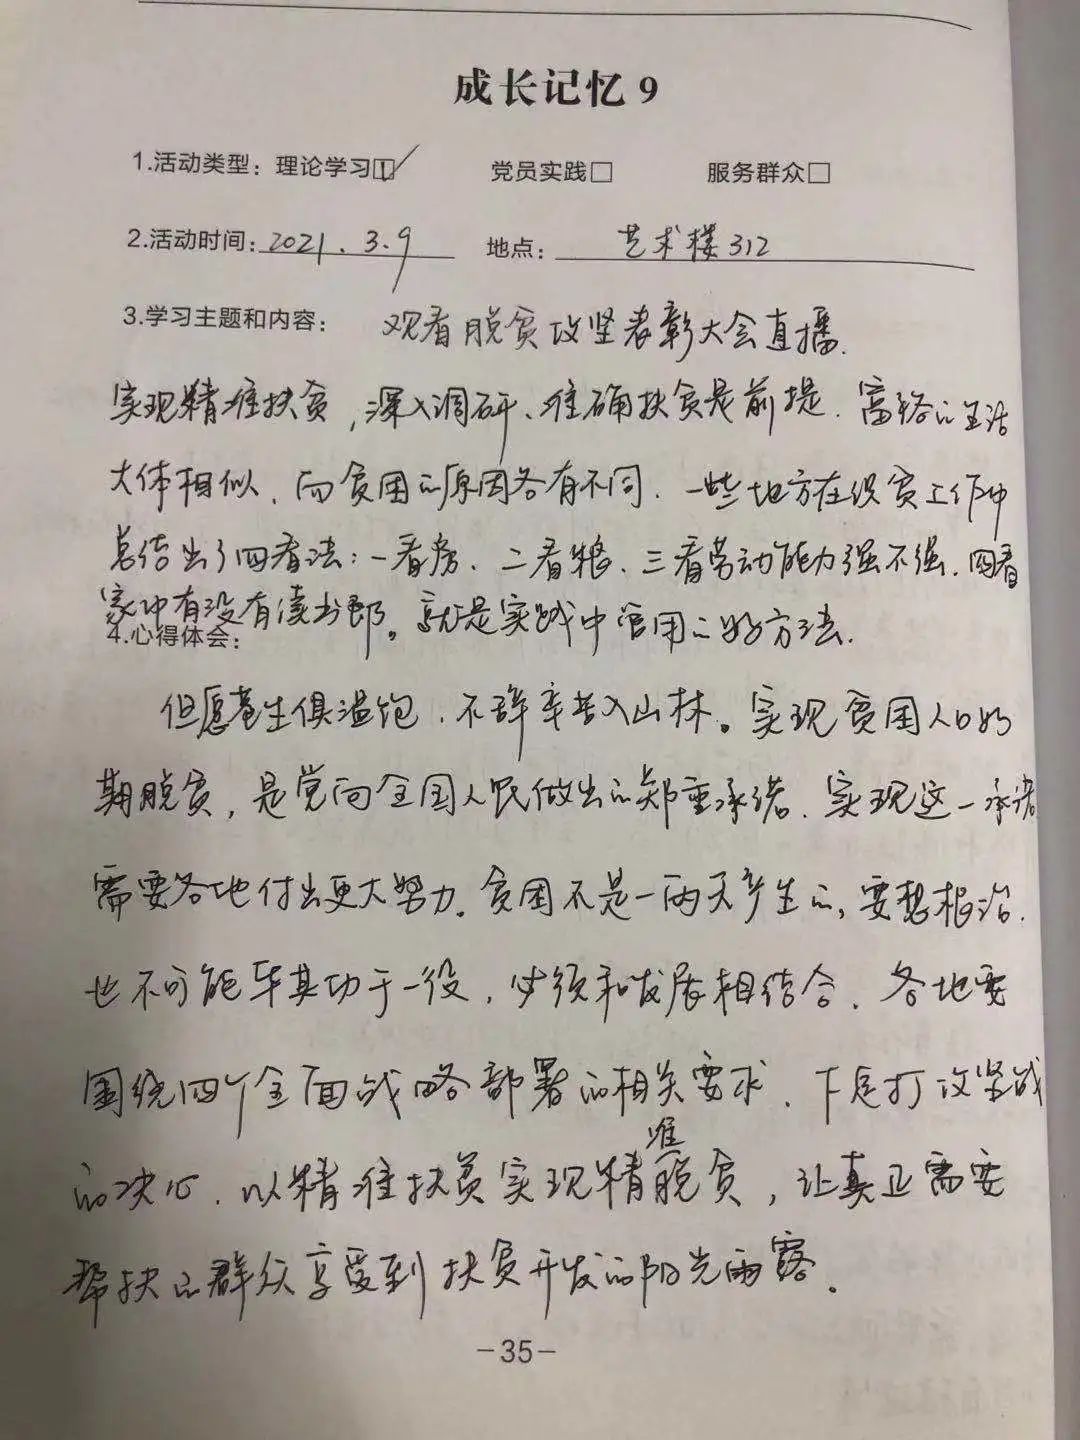 成长记忆9
1.活动类型：理论学习☑ 党员实践□ 服务群众□
2.活动时间：2021.3.9 地点：艺术楼312
3.学习主题和内容： 观看脱贫攻坚表彰大会直播.
实现精准扶贫，深入调研、准确扶贫是前提.富裕的生活
大体相似，而贫困的原因各有不同.一些地方在扶贫工作中
总结出了四看法：一看房、二看粮、三看劳动能力强不强、四看
家中有没有读书郎。就是实践中管用的好方法.
4.心得体会：
但愿苍生俱温饱，不辞辛苦入山林。实现贫困人口如
期脱贫，是党向全国人民做出的郑重承诺.实现这一承诺
需要各地付出更大努力.贫困不是一两天产生的，要想根治.
也不可能毕其功于一役，必须和发展相结合.各地要
围绕四个全面战略部署的相关要求，下足打攻坚战
的决心.以精准扶贫实现精准脱贫，让真正需要
帮扶的群众享受到扶贫开发的阳光雨露.
-35-